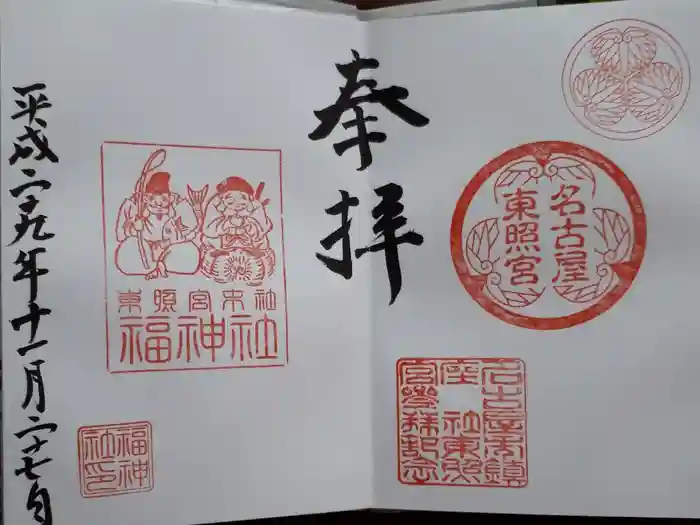 奉拝
名古屋
東照宮
名古屋市鎮
座 社東照
宮參拜記念
東照宮末社
福神社
福神
社印
平成二十九年十一月二十七日